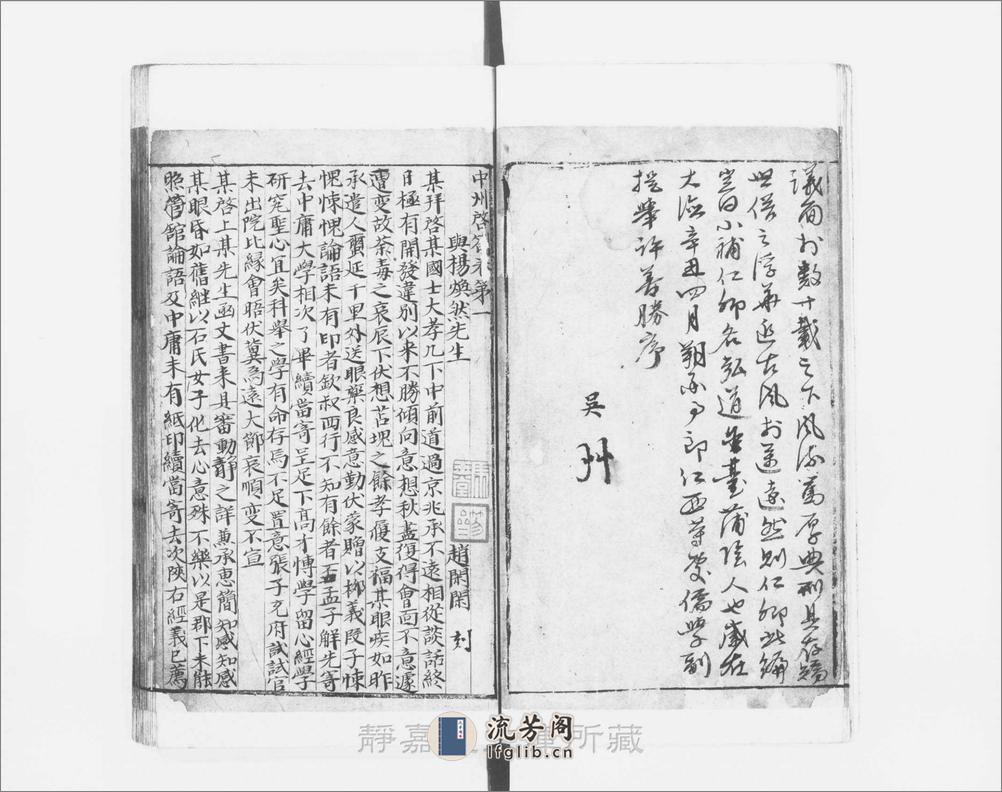 議而於數十載之下風流篤厚典刑具存矯
世俗之浮華近古風於邃遠然則仁卿此編
豈曰小補仁卿名弘道金臺蒲陰人也歲在
大德辛丑四月朔承事郎江西等處儒學副
提舉許善勝序
吳
中州啓劄卷第一
與楊煥然先生
趙閑閑
刻
某拜啓某國士大孝几下中前道過京兆承不遠相從談話終
日極有開發違別以來不勝傾向意想秋盡復得會面不意遽
遭變故荼毒之哀辰下伏想苫塊之餘孝履支福某眼疾如昨
承遣人蜀延千里外送眼藥良感意勤伏蒙贈以柳義段子悚
愧悚愧論語未有印者欽叔西行不知有餘者否孟子解先寄
去中庸大學相次了畢續當寄呈足下高才博學留心經學
研究聖心宜矣科舉之學有命存焉不足置意張子充府試試官
未出院比緣會晤伏冀為遠大節哀順變不宣
某啓上某先生函丈書來具審動靜之詳兼承惠簡知感知感
某眼昏如舊繼以石氏女子化去心意殊不樂以是郡下未能
照管館論語及中庸未有紙印續當寄去次陝右經義已薦
靜嘉堂文庫所藏
流芳阁
lfglib.cn